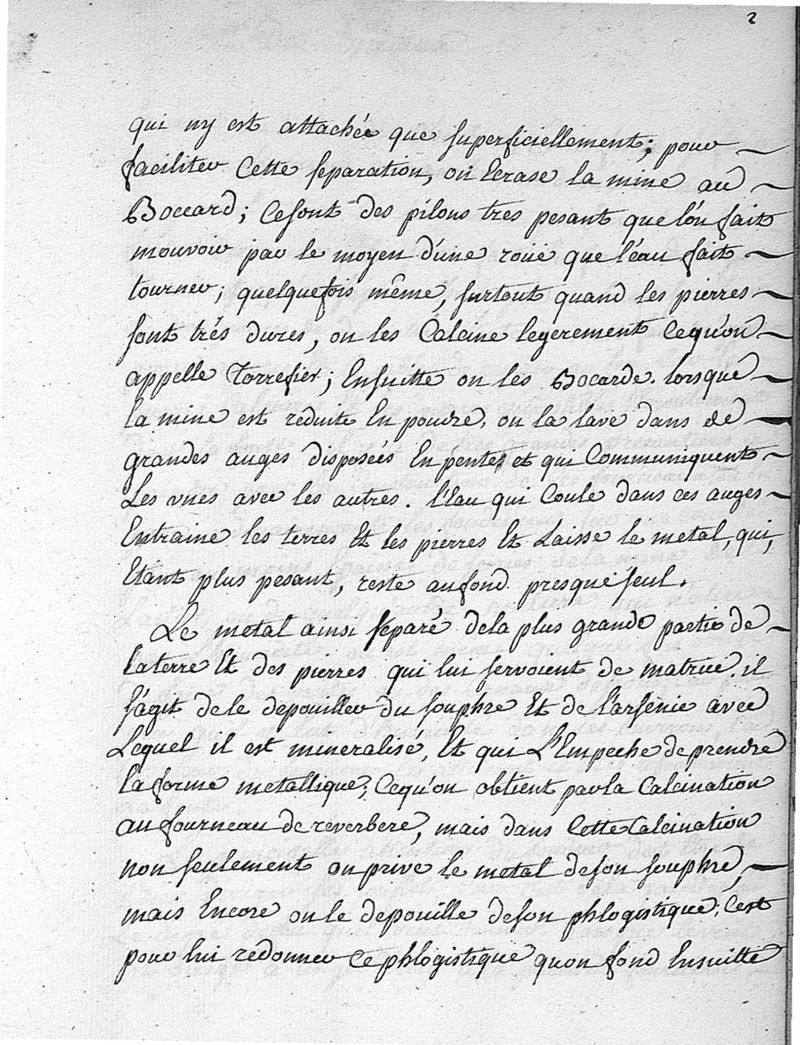 2
qui ny est attachée que superficiellement; pour
faciliter Cette separation, on Ecrase la mine au
Boccard; Ce sont des pilons tres pesant que l'on fait
mouvoir par le moyen d'une roüe que l'eau fait
tourner; quelquefois même, surtout quand les pierres
sont trés dures, on les Calcine legerement Cequ'on
appelle Torrefier; Ensuitte on les Bocarde. lorsque
la mine est reduite En poudre, on la lave dans de
grandes auges disposées En pente et qui Communiquent
Les unes avec les autres. l'Eau qui Coule dans ces auges
Entraine les terres Et les pierres Et Laisse le metal, qui,
Etant plus pesant, reste au fond presque seul.
Le metal ainsi separé dela plus grande partie de
la terre Et des pierres qui lui servoient de matrice. il
s'agit dele depouiller du souphre Et de l'arsenic avec
Lequel il est mineralisé, Et qui L'Empeche de prendre
la forme metallique; Cequ'on obtient par la Calcination
au fourneau de reverbere, mais dans Cette Calcination
non seulement on prive le metal deson souphre,
mais Encore on le depouille deson phlogistique; C'est
pour lui redonner Ce phlogistique quon fond Ensuitte